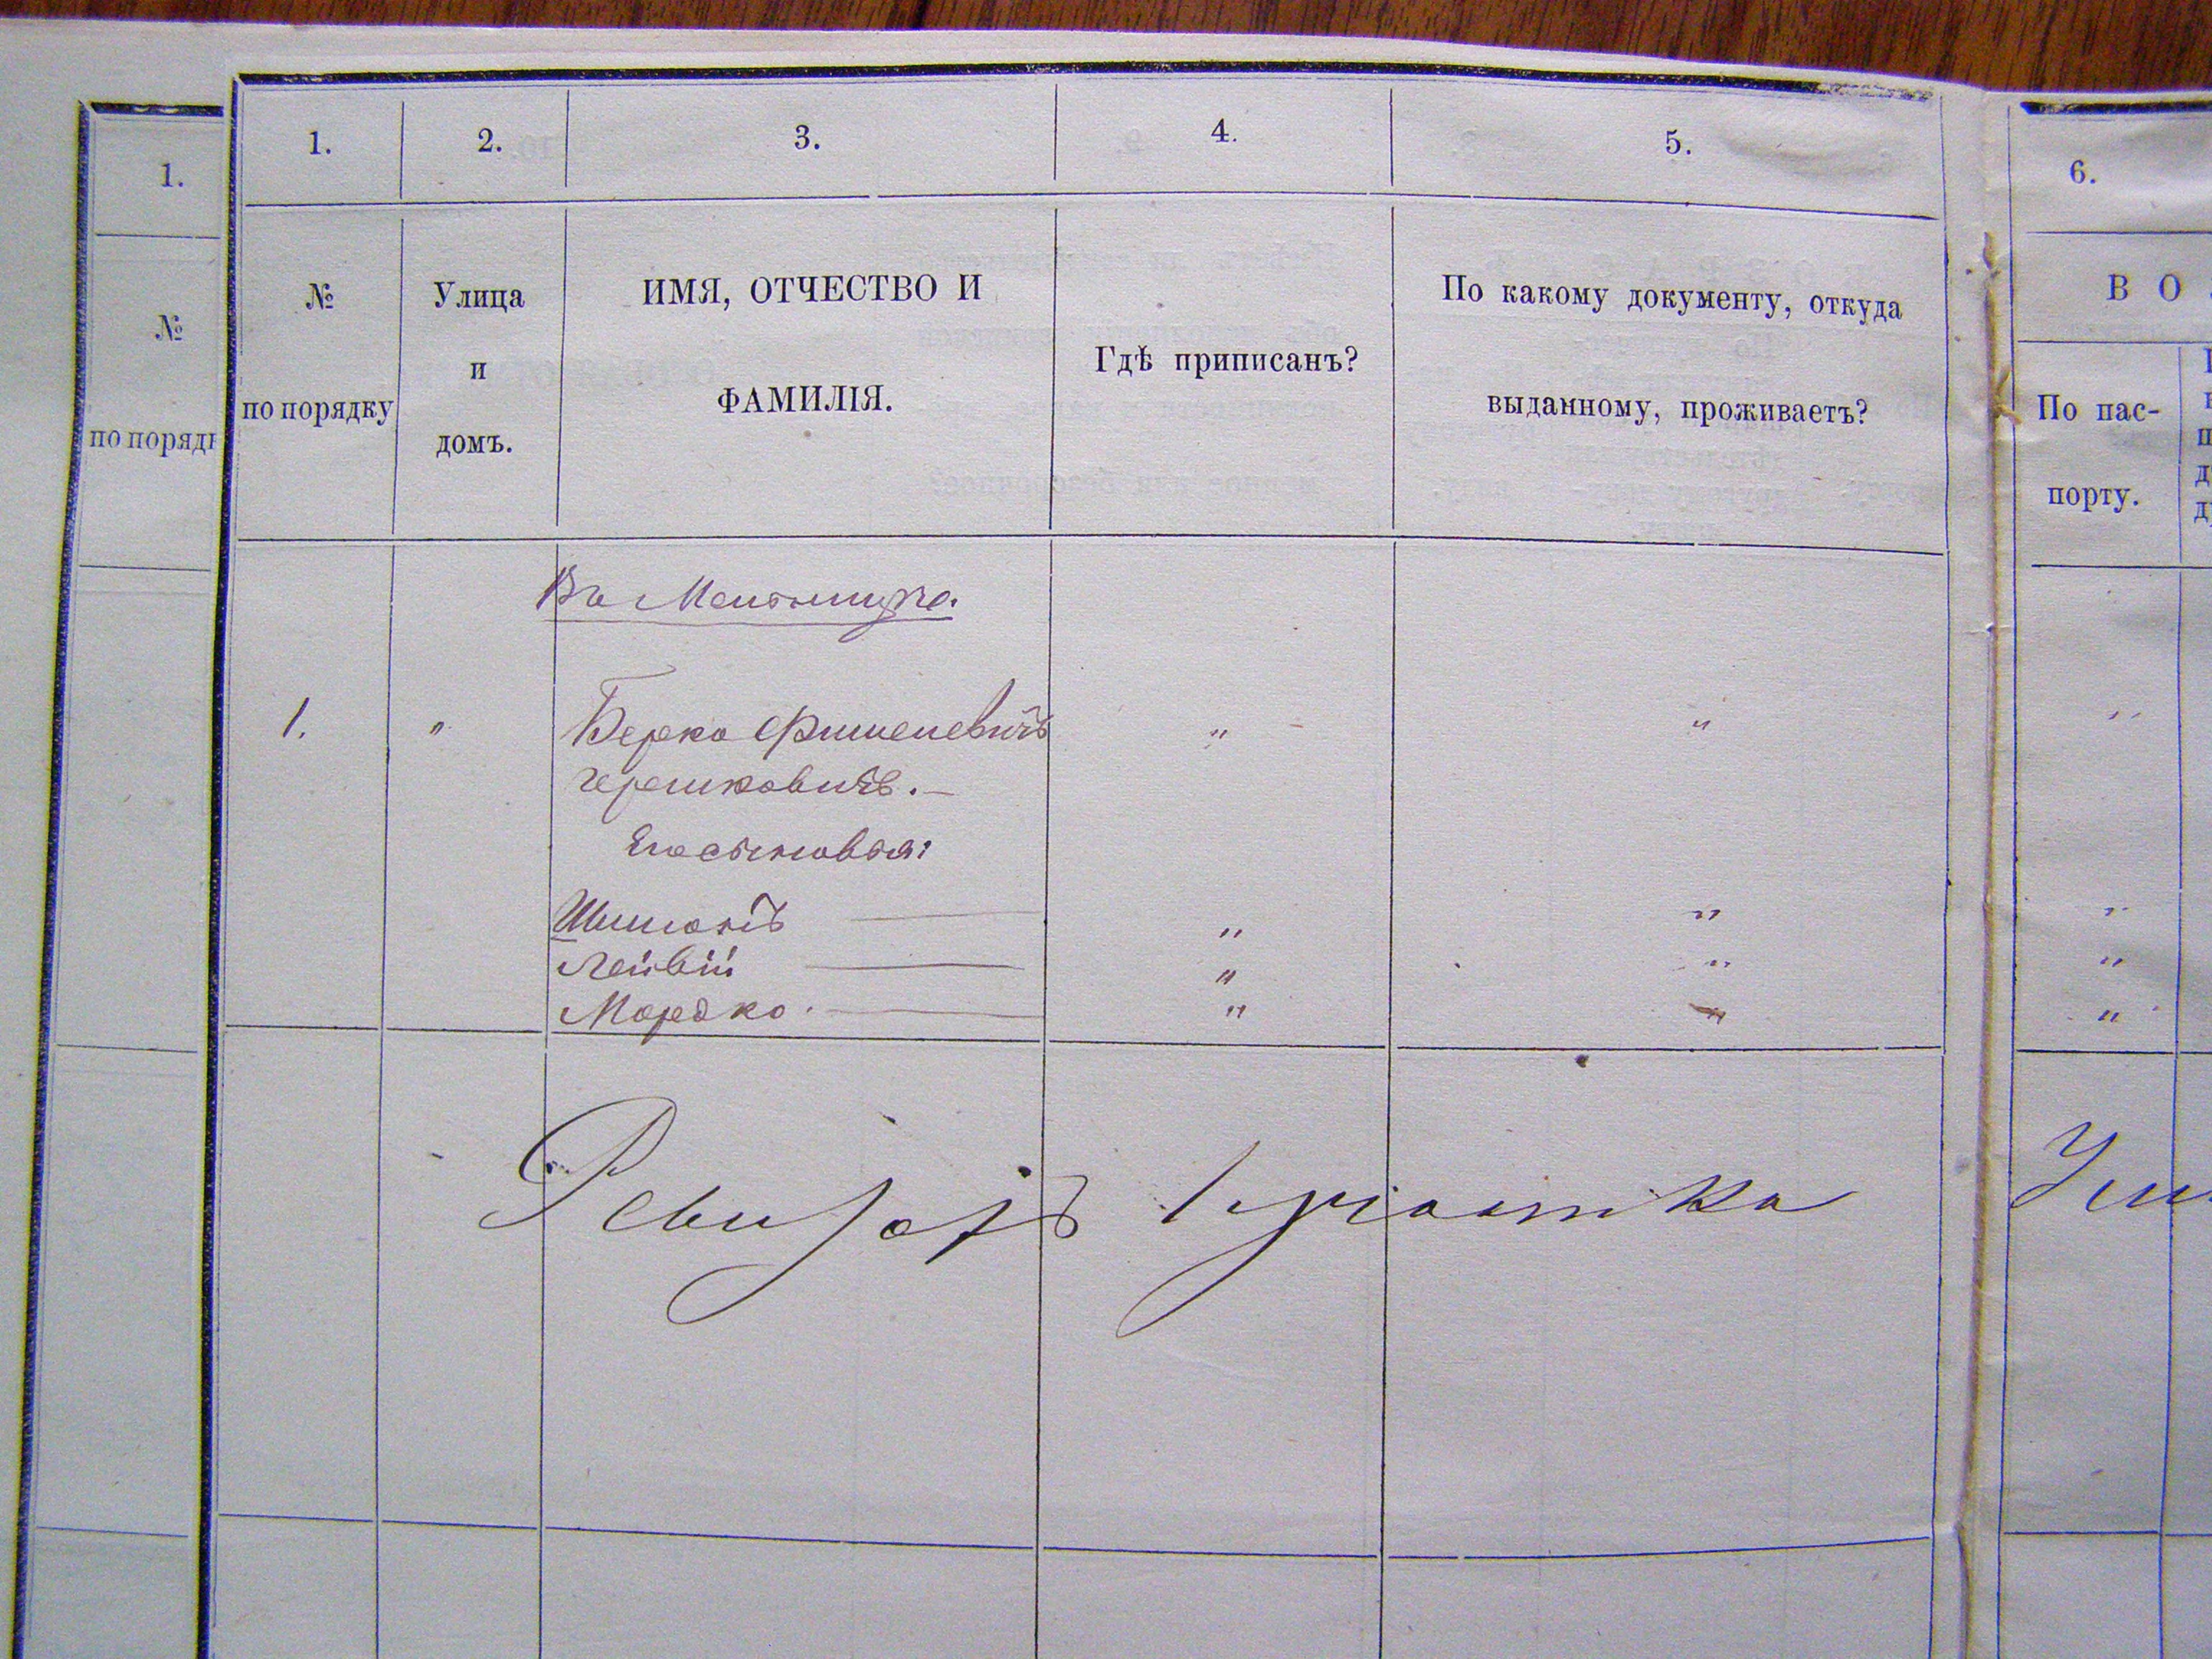 1.
1.
2.
3.
4.
5.
6.
№
по поряд
№
по порядку
Улица
и
домъ.
ИМЯ, ОТЧЕСТВО И
ФАМИЛІЯ.
Гдѣ приписанъ?
По какому документу, откуда
выданному, проживаетъ?
В О
По пас-
порту.
Въ
1. " Берко Фишелевичъ " " "
Чершковичъ.—
Его сыновья:
Шимонъ — " " "
Лейвій — " " "
Мордко. — " " "
Ревизоръ